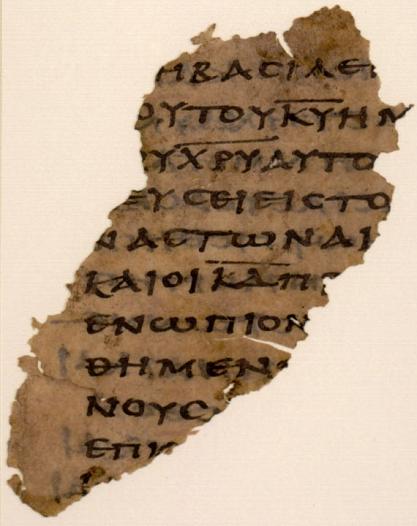 ΗΒΑϹΙΛΕΙ
ΟΥΤΟΥΚ̅Υ̅ΗΜ
ΥΧ̅Ρ̅Υ̅ΑΥΤΟ
ΕΥϹΕΙΕΙϹΤΟ
ΝΑϹΤΩΝΑΙ
ΚΑΙΟΙΚ̅Δ̅ΠΡ
ΕΝΩΠΙΟΝ
ΘΗΜΕΝΟ
ΝΟΥϹ
ΕΠΙ